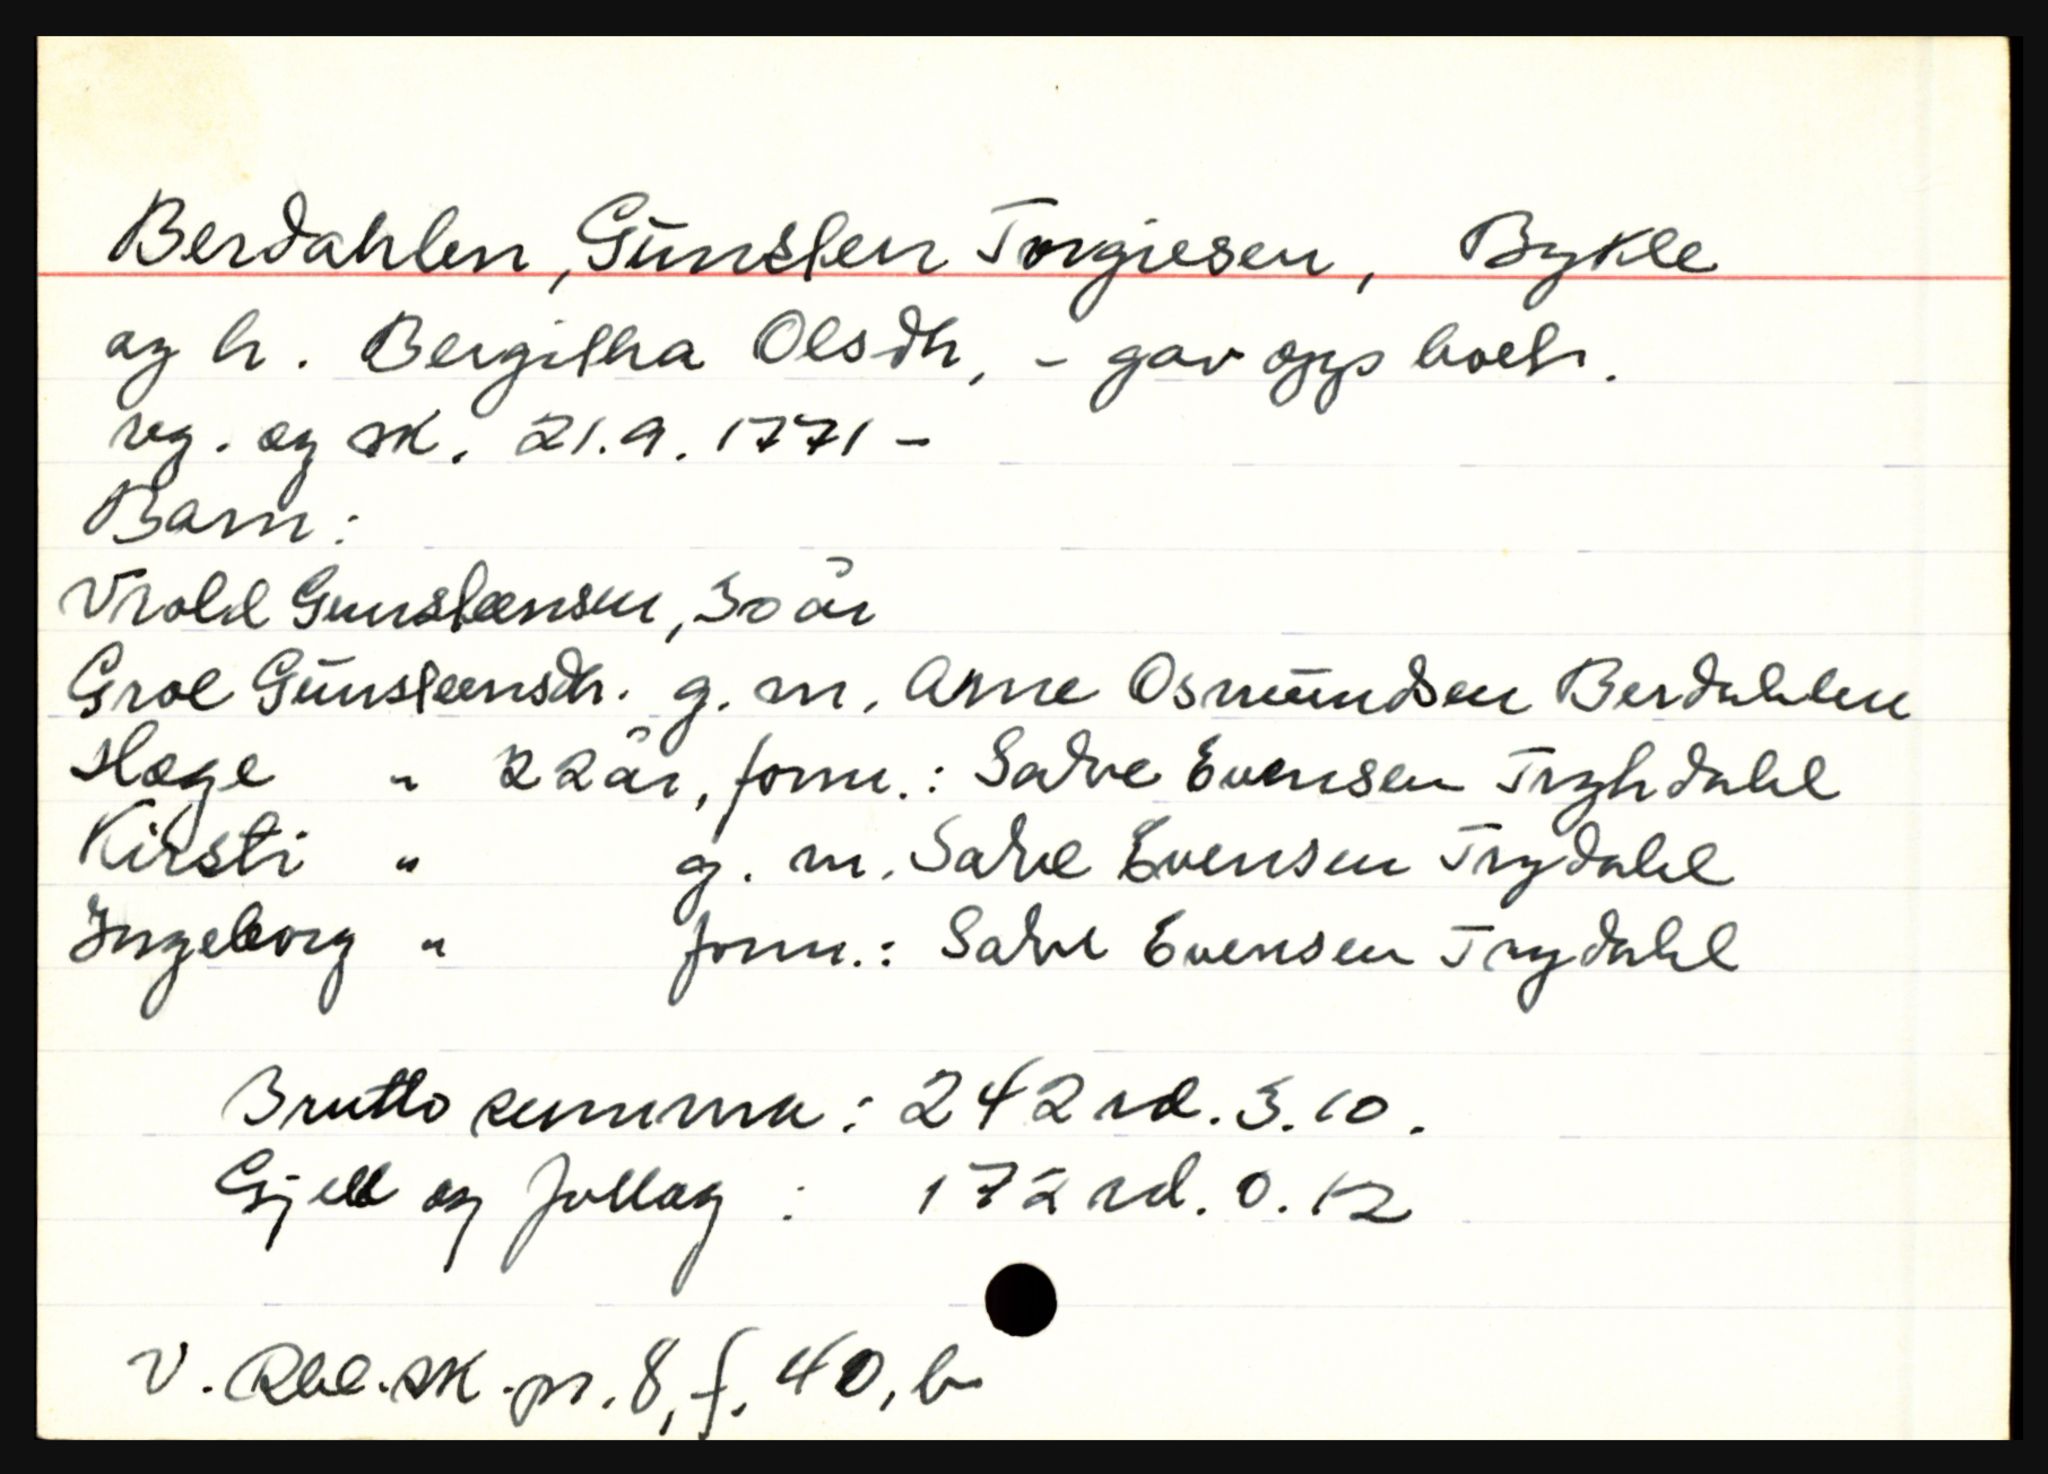 Berdahlen, Gunsten Torgiesen, Bykle
og h. Bergitha Olsdtr, - gav opp boet.
reg. og sk. 21.9.1771 -
Barn:
Vrold Gunstensen, 30 år
Groe Gunsteensdtr. g. m. Arne Osmundsen Berdahlen
Hæge " 22 år, form.: Salve Evensen Tryhdahl
Kirsti " g. m. Salve Evensen Trydahl
Ingeborg " form.: Salve Evensen Trydahl
Brutto summa: 242 rd. 3. 10.
Gjeld og follag : 172 rd. 0. 12
V. Rbl. sk. pr. 8, f. 40, b